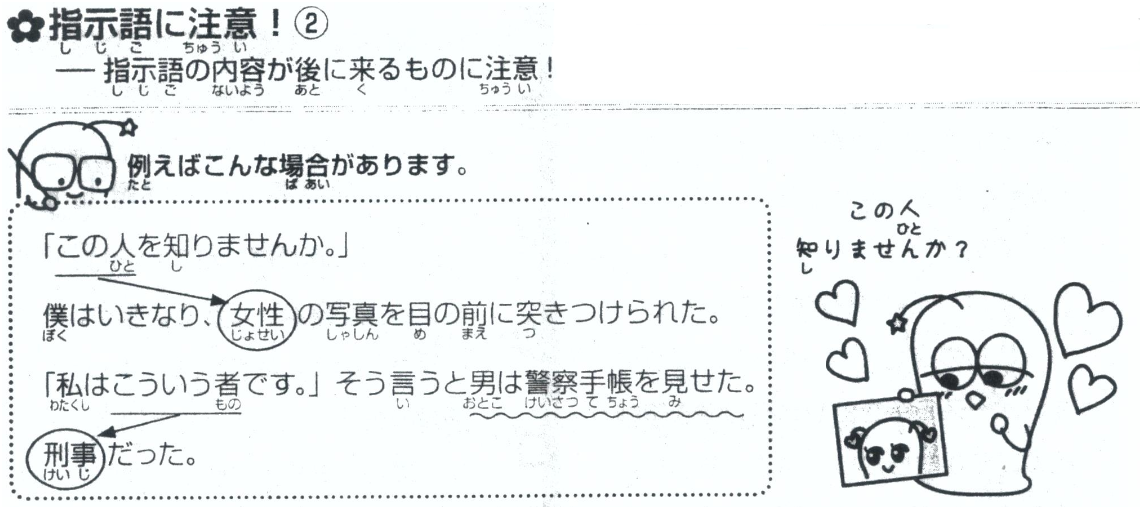 ✿指示語に注意！②
しじご ちゅうい
── 指示語の内容が後に来るものに注意！
しじご ないよう あと く ちゅうい
例えばこんな場合があります。
たと ばあい
「この人を知りませんか。」
ひと し
僕はいきなり、女性の写真を目の前に突きつけられた。
ぼく じょせい しゃしん め まえ つ
「私はこういう者です。」そう言うと男は警察手帳を見せた。
わたくし もの い おとこ けいさつてちょう み
刑事だった。
けいじ
この人
ひと
知りませんか？
し